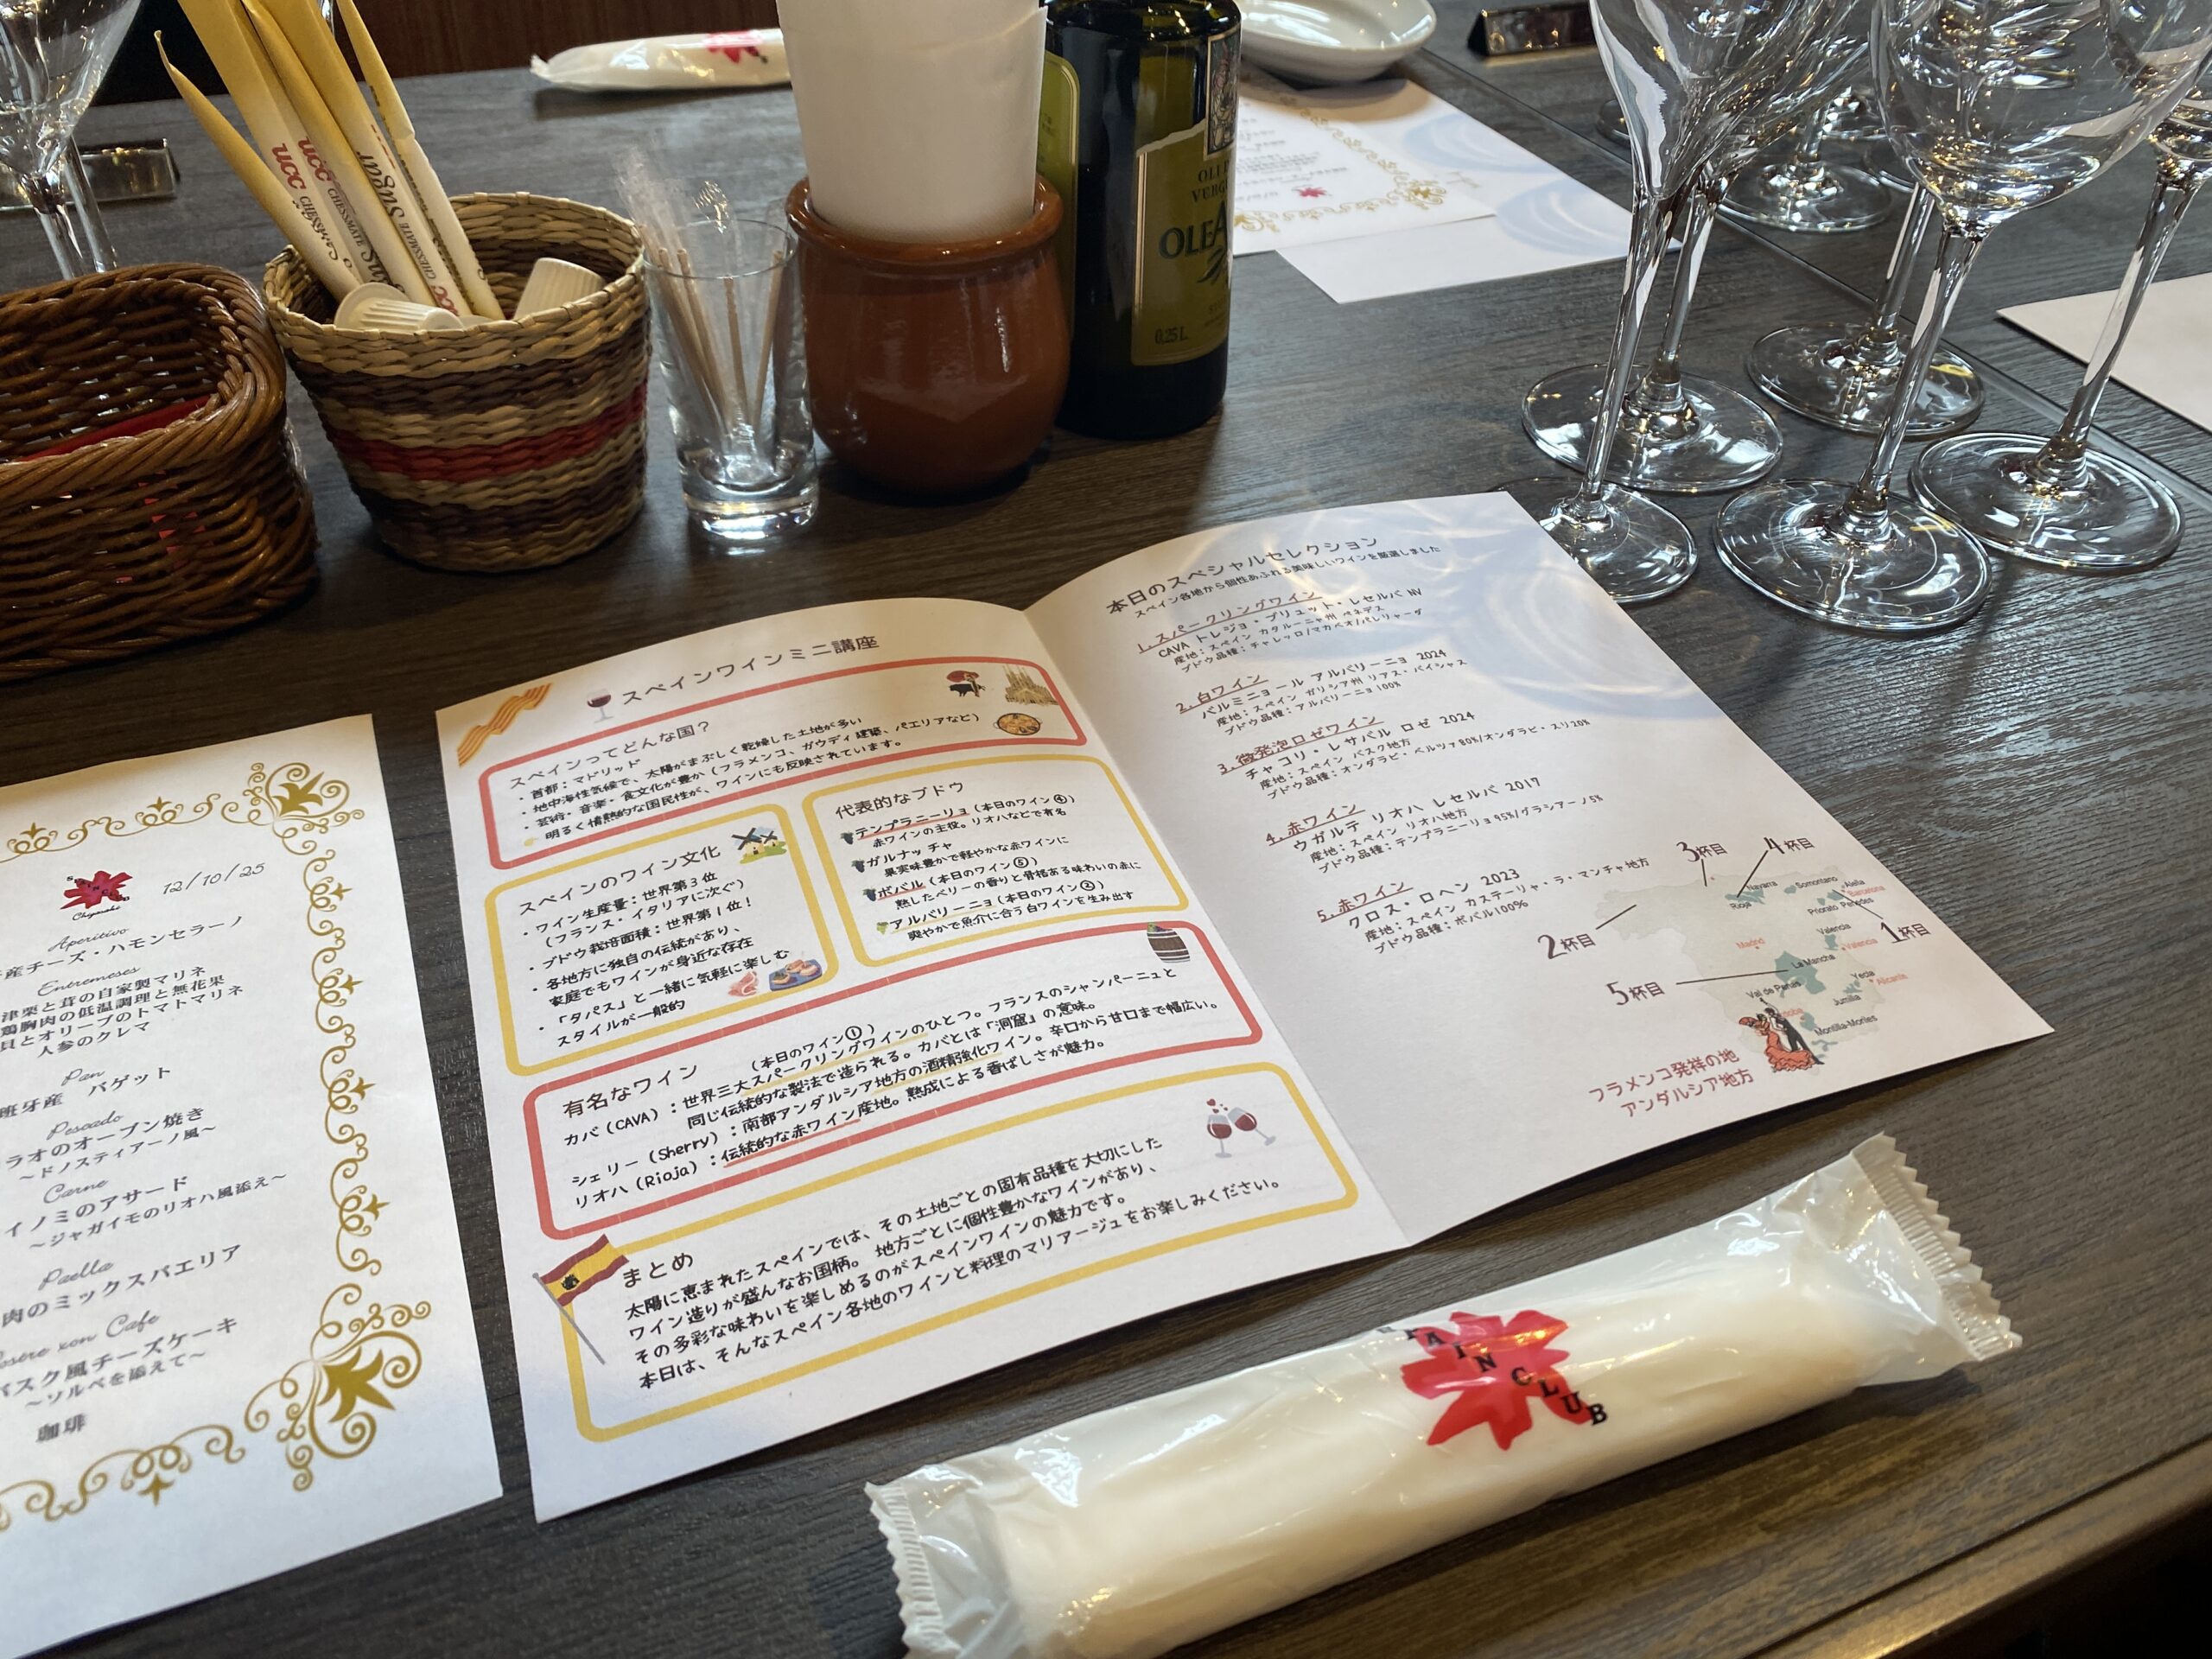 UCC
CHESSMATE
Sugar
UCC
CHESSMATE
OLEA
0,25 L.
12/10/25
Aperitivo
産チーズ・ハモンセラーノ
Entremeses
津栗と茸の自家製マリネ
鶏胸肉の低温調理と無花果
貝とオリーブのトマトマリネ
人参のクレマ
Pan
班牙産 バゲット
Pescado
ラオのオーブン焼き
~ドノスティアーノ風~
Carne
イノミのアサード
~ジャガイモのリオハ風添え~
Paella
肉のミックスパエリア
ostre xon Cafe
バスク風チーズケーキ
~ソルベを添えて~
珈琲
スペインワインミニ講座
スペインってどんな国?
・首都:マドリッド
・地中海性気候で、太陽がまぶしく乾燥した土地が多い
・芸術・音楽・食文化が豊か(フラメンコ、ガウディ建築、パエリアなど)
明るく情熱的な国民性が、ワインにも反映されています。
スペインのワイン文化
・ワイン生産量:世界第3位
(フランス・イタリアに次ぐ)
・ブドウ栽培面積:世界第1位!
・各地方に独自の伝統があり、
家庭でもワインが身近な存在
・「タパス」と一緒に気軽に楽しむ
スタイルが一般的
代表的なブドウ
テンプラニーリョ(本日のワイン④)
赤ワインの主役。リオハなどで有名
ガルナッチャ
果実味豊かで軽やかな赤ワインに
ボバル(本日のワイン⑤)
熟したベリーの香りと骨格ある味わいの赤に
アルバリーニョ(本日のワイン②)
爽やかで魚介に合う白ワインを生み出す
有名なワイン
(本日のワイン①)
カバ(CAVA):世界三大スパークリングワインのひとつ。フランスのシャンパーニュと
同じ伝統的な製法で造られる。カバとは「洞窟」の意味。
シェリー(Sherry):南部アンダルシア地方の酒精強化ワイン。辛口から甘口まで幅広い。
リオハ(Rioja):伝統的な赤ワイン産地。熟成による香ばしさが魅力。
まとめ
太陽に恵まれたスペインでは、その土地ごとの固有品種を大切にした
ワイン造りが盛んなお国柄。 地方ごとに個性豊かなワインがあり、
その多彩な味わいを楽しめるのがスペインワインの魅力です。
本日は、そんなスペイン各地のワインと料理のマリアージュをお楽しみください。
本日のスペシャルセレクション
スペイン各地から個性あふれる美味しいワインを厳選しました
1.スパークリングワイン
CAVA トレジョ・ブリュット・レセルバ NV
産地:スペイン カタルーニャ州 ペネデス
ブドウ品種:チャレッロ/マカベオ/パレリャーダ
2.白ワイン
バルミニョール アルバリーニョ 2024
産地:スペイン ガリシア州 リアス・バイシャス
ブドウ品種:アルバリーニョ100%
3.微発泡ロゼワイン
チャコリ・レサバル ロゼ 2024
産地:スペイン バスク地方
ブドウ品種:オンダラビ・ベルツァ80%/オンダラビ・スリ20%
4.赤ワイン
ウガルテ リオハ レセルバ 2017
産地:スペイン リオハ地方
ブドウ品種:テンプラニーリョ95%/グラシアーノ5%
5.赤ワイン
クロス・ロヘン 2023
産地:スペイン カステーリャ・ラ・マンチャ地方
ブドウ品種:ボバル100%
3杯目
4杯目
2杯目
1杯目
5杯目
Rioja
Navarra
Somontano
Alella
Barcelona
Priorato
Penedes
Madrid
Valencia
Valencia
La Mancha
Yecla
Alicante
Val de Penas
Jumilla
Montilla-Moriles
フラメンコ発祥の地
アンダルシア地方
SPAIN CLUB